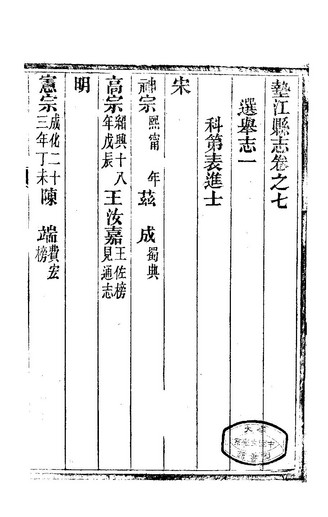 墊江縣志卷之七
選舉志一
科第表進士
宋
神宗熙甯 年茲 成蜀典
高宗紹興十八年戊辰王汝嘉王佐榜見通志
明
憲宗成化二十三年丁未陳 端費宏榜